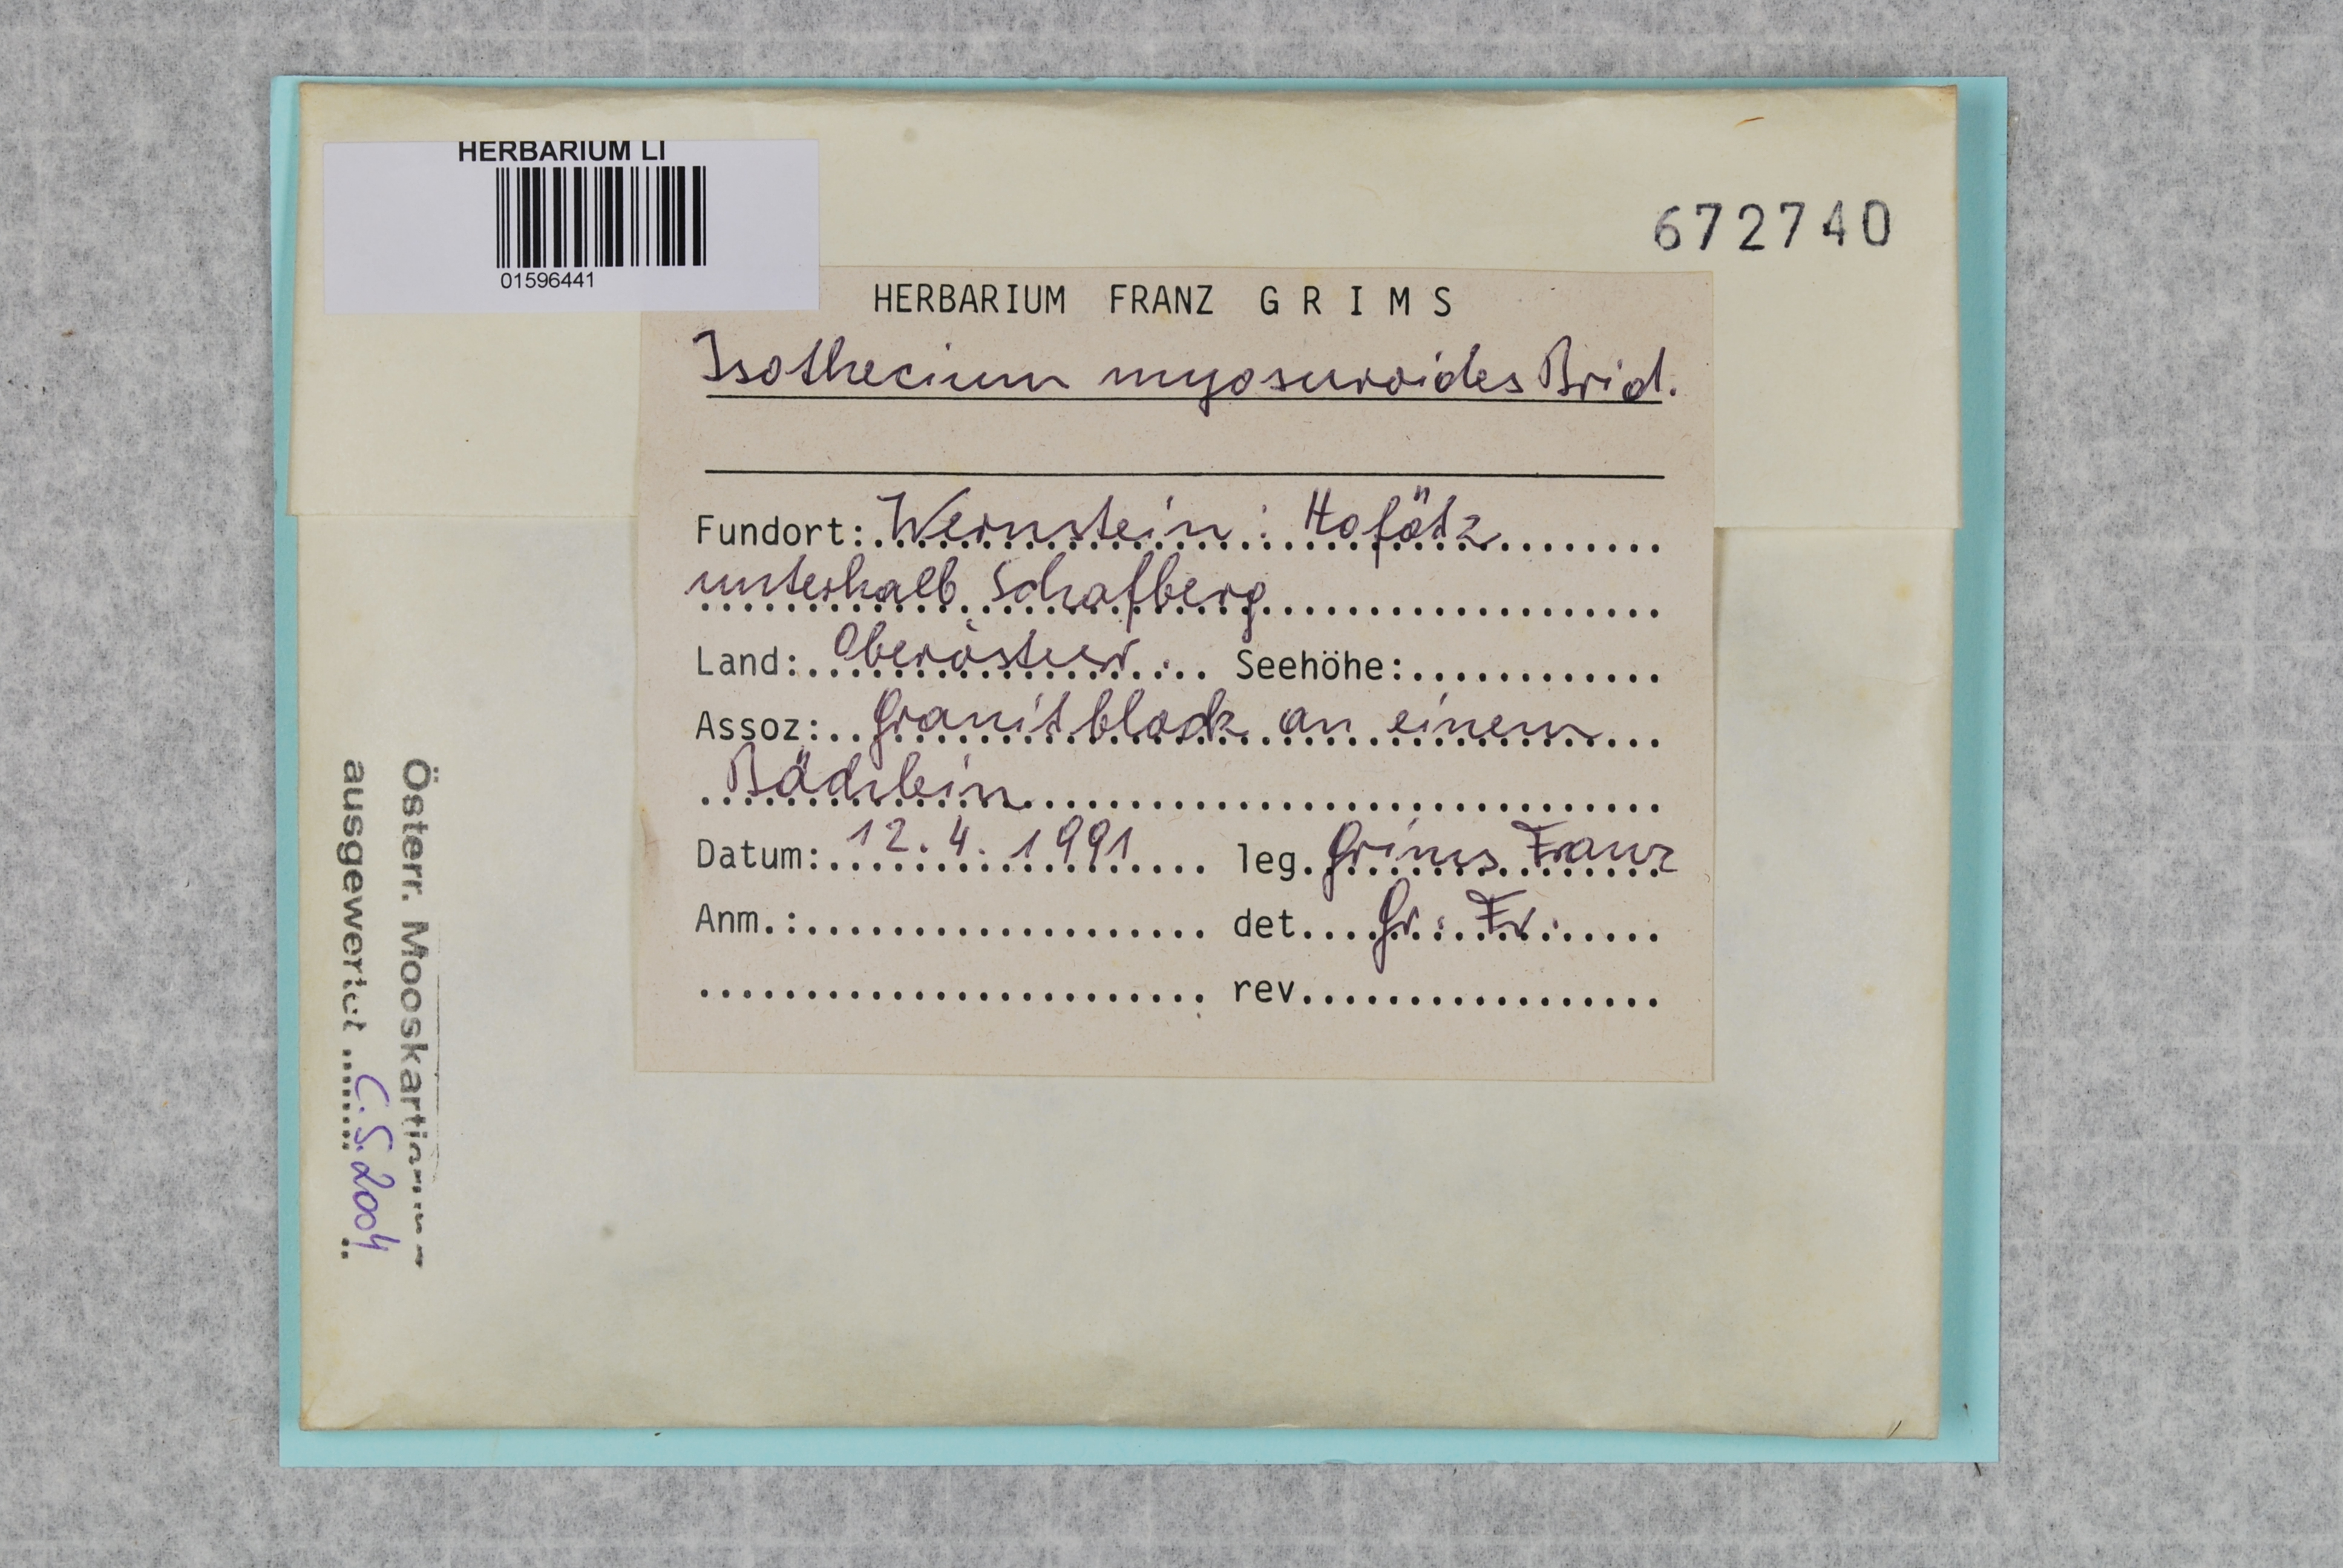 HERBARIUM LI
01596441
672740
HERBARIUM FRANZ GRIMS
Isothecium myosuroides Brid.
Fundort: Wernstein: Hofötz
unterhalb Schafberg
Land: Oberösterr. Seehöhe:
Assoz: Granitblock an einem
Bächlein
Datum: 12.4.1991 leg. Grims Franz
Anm.: det. Gr. Fr.
rev.
Österr. Mooskartierung
ausgewertet C.S. 2004